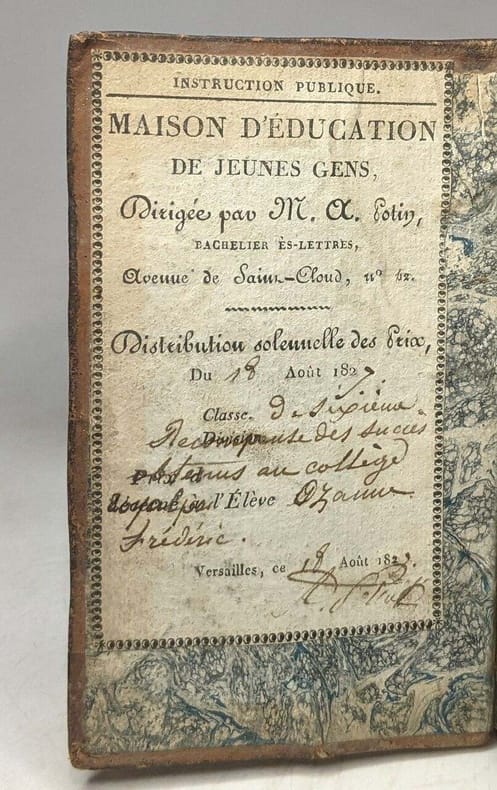 INSTRUCTION PUBLIQUE.
MAISON D'ÉDUCATION
DE JEUNES GENS,
Dirigée par M. A. Potin,
BACHELIER ÈS-LETTRES,
Avenue de Saint-Cloud, nº 62.
Distribution solennelle des Prix,
Du 18 Août 1827
Classe de sixième
Récompense des succès
obtenus au collège
à l'Élève Ozanne
frédéric.
Versailles, ce 18 Août 1827.